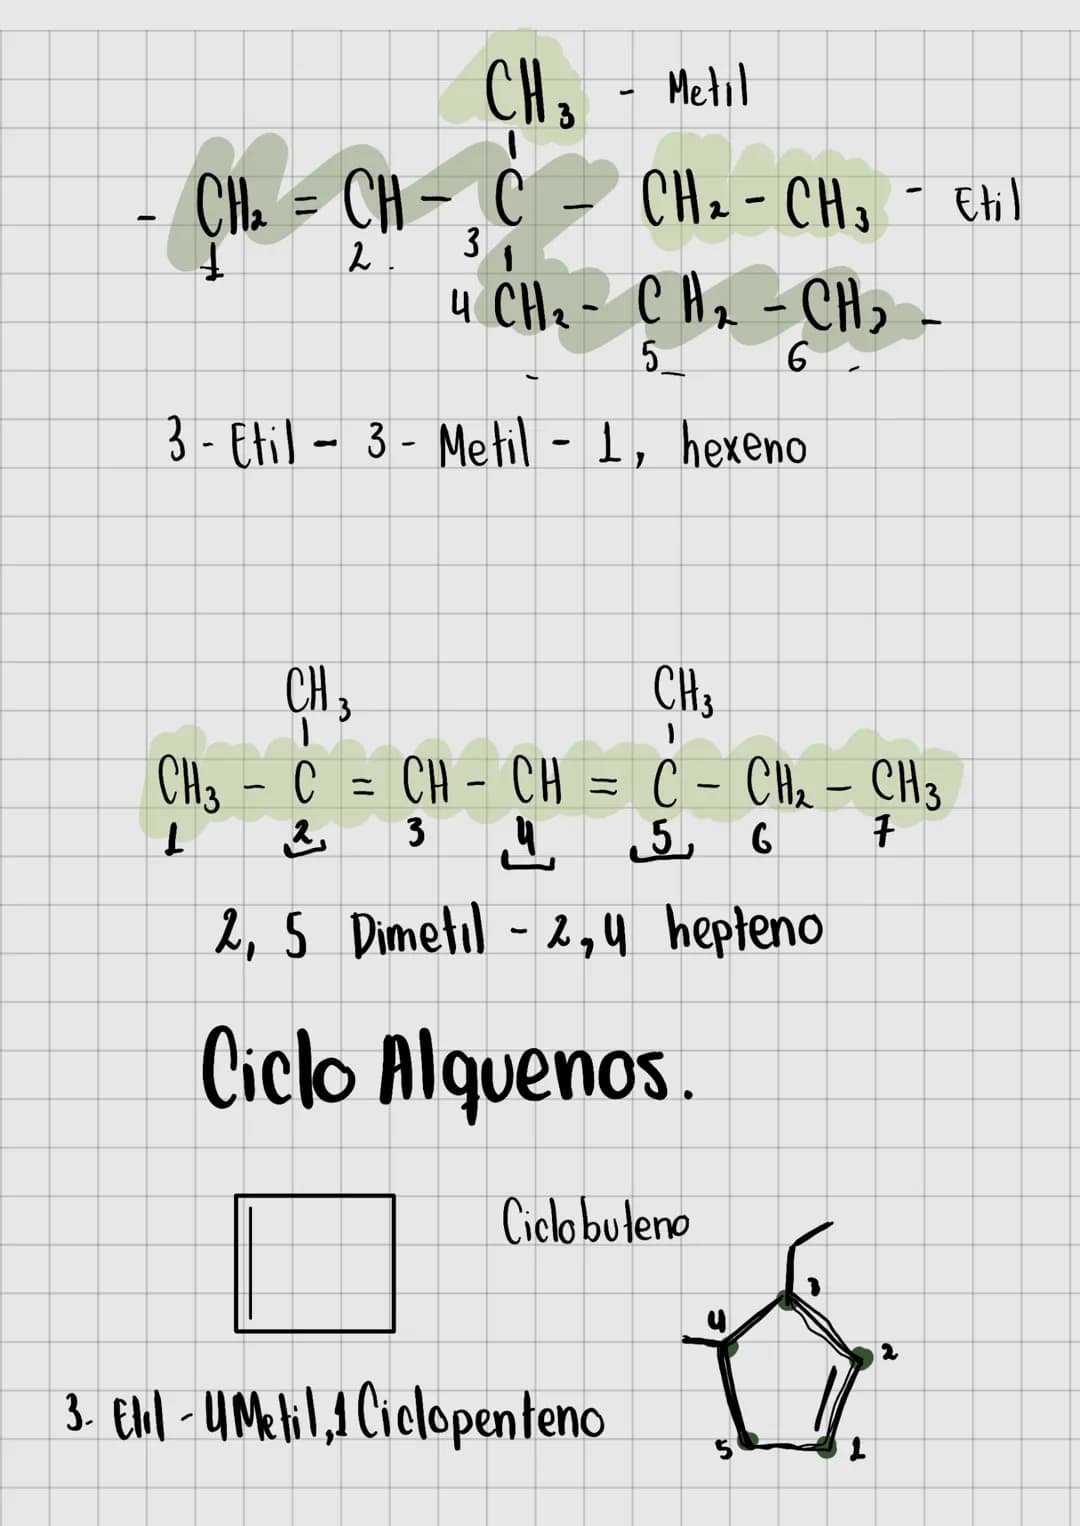 CH₃ - Metil
- CH₂ = CH - C - CH₂ - CH₃ - Etil
1 2. 3
4 CH₂ - CH₂ - CH₃ -
5 6
3 - Etil - 3 - Metil - 1, hexeno
CH₃ CH₃
CH₃ - C = CH - CH = C - CH₂ - CH₃
1 2 3 4 5 6 7
2, 5 Dimetil - 2,4 hepteno
Ciclo Alquenos.
Ciclobuteno
3
4
2
3- Etil - 4 Metil, 1 Ciclopenteno
5 1